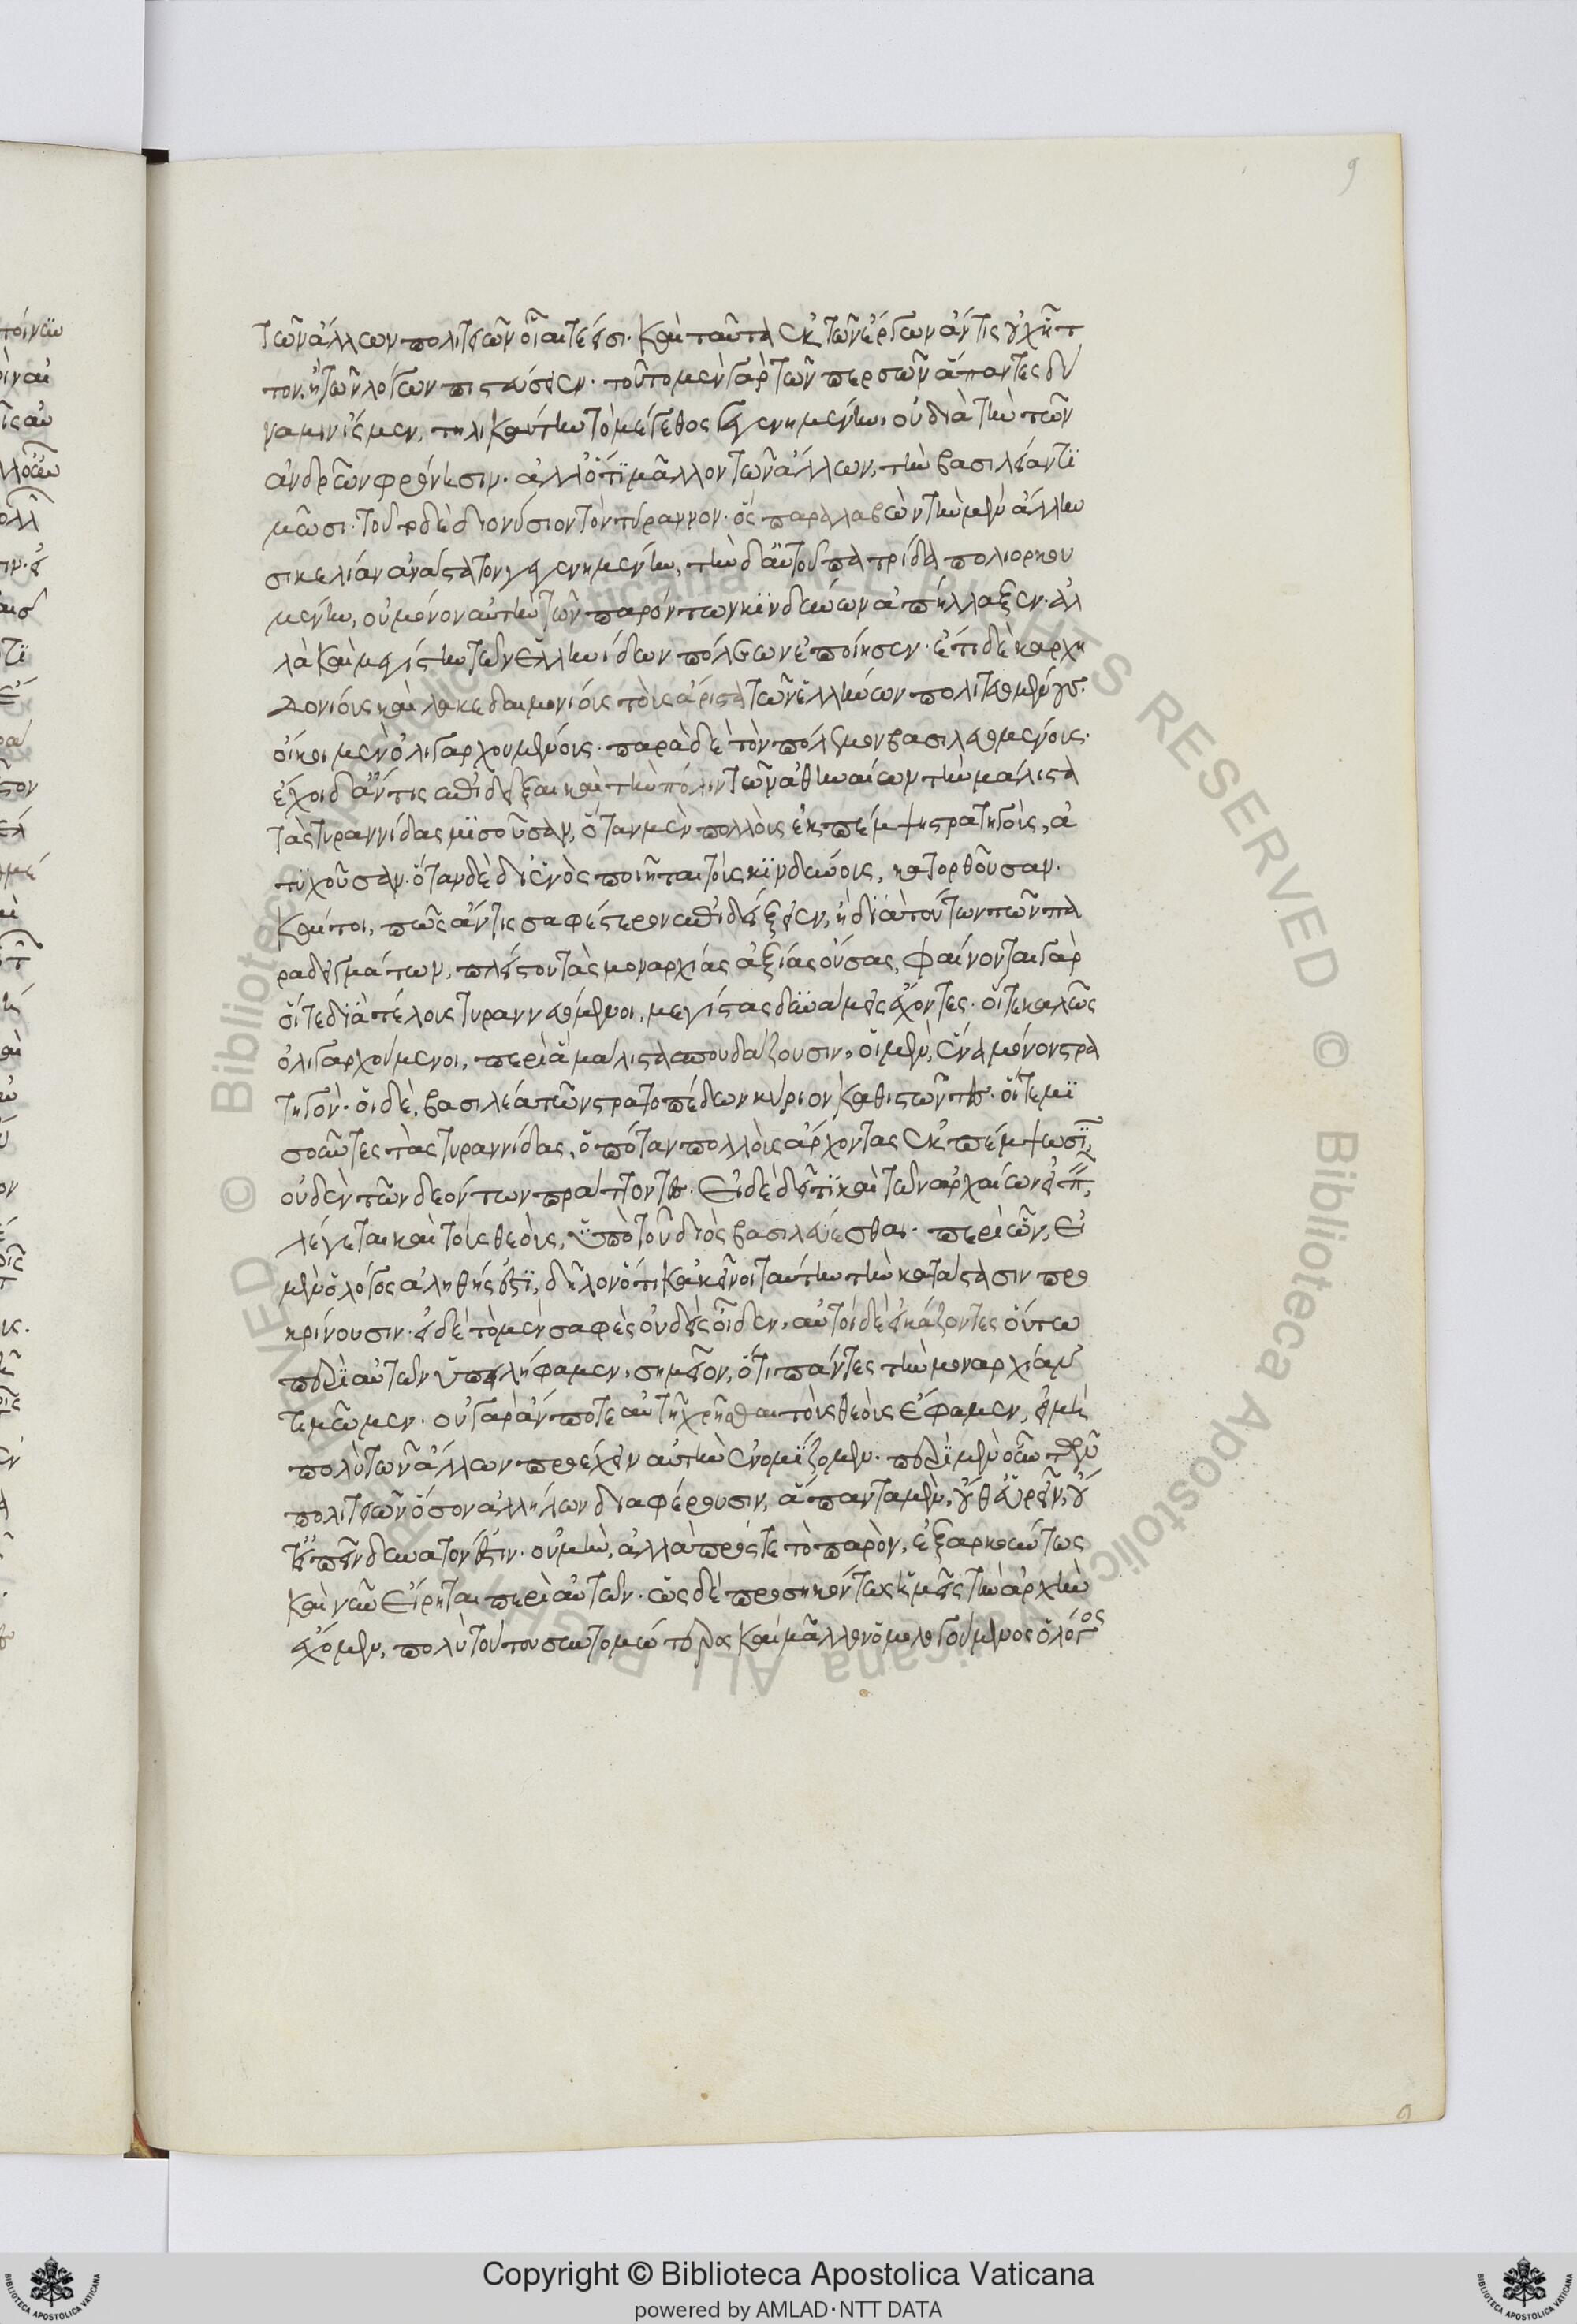 τῶν ἄλλων πολιτειῶν οἷαί τε εἰσι. καὶ ταῦτα ἐκ τῶν ἔργων ἄν τις οὐχ ἧτ
τον, ἢ τῶν λόγων πιστεύσειεν. τοῦτο μὲν γὰρ τῶν περσῶν ἅπαντες δύ
ναμιν ἴσμεν, τηλικαύτην τὸ μέγεθος γεγενημένην, οὐ διὰ τὴν τῶν
ἀνδρῶν φρόνησιν. ἀλλ' ὅτι μᾶλλον τῶν ἄλλων, τὴν βασιλείαν τι
μῶσι. τοῦτο δὲ διονύσιον τὸν τύραννον. ὃς παραλαβὼν τὴν μὲν ἄλλην
σικελίαν ἀνάστατον γεγενημένην, τὴν δ' αὑτοῦ πατρίδα πολιορκου
μένην, οὐ μόνον αὐτὴν τῶν παρόντων κινδύνων ἀπήλλαξεν. ἀλ
λὰ καὶ μεγίστην τῶν ἑλληνίδων πόλεων ἐποίησεν. ἔτι δὲ καρχη
δονίοις καὶ λακεδαιμονίοις τοὺς ἄριστα τῶν ἑλλήνων πολιτευομένους.
οἴκοι μὲν ὀλιγαρχουμένους. παρὰ δὲ τὸν πόλεμον βασιλευομένους.
ἔχοι δ' ἄν τις ἐπιδεῖξαι καὶ τὴν πόλιν τῶν ἀθηναίων τὴν μάλιστα
τὰς τυραννίδας μισοῦσαν, ὅταν μὲν πολλοὺς ἐκπέμψῃ στρατηγοὺς, ἀ
τυχοῦσαν. ὅταν δὲ δι' ἑνὸς ποιῆται τοὺς κινδύνους, κατορθοῦσαν.
καίτοι, πῶς ἄν τις σαφέστερον ἐπιδείξειεν, ἢ διὰ τούτων τῶν πα
ραδειγμάτων, πλείστου τὰς μοναρχίας ἀξίας οὔσας, φαίνονται γὰρ
οἵ τε διὰ τέλους τυραννευόμενοι, μεγίστας δυνάμεις ἔχοντες. οἵ τε καλῶς
ὀλιγαρχούμενοι, περὶ ἃ μάλιστα σπουδάζουσιν, οἱ μὲν, ἕνα μόνον στρα
τηγόν. οἱ δὲ, βασιλέα τῶν στρατοπέδων κύριον καθιστῶντες. οἵ τε μι
σοῦντες τὰς τυραννίδας, ὁπόταν πολλοὺς ἄρχοντας ἐκπέμψωσιν,
οὐδὲν τῶν δεόντων πράττοντες. εἰ δὲ δεῖ τι καὶ τῶν ἀρχαίων εἰπεῖν,
λέγεται καὶ τοὺς θεοὺς, ὑπὸ τοῦ διὸς βασιλεύεσθαι. περὶ ὧν, εἰ
μὲν ὁ λόγος ἀληθής ἐστι, δῆλον ὅτι κἀκεῖνοι ταύτην τὴν κατάστασιν προ
κρίνουσιν. εἰ δὲ τὸ μὲν σαφὲς οὐδεὶς οἶδεν, αὐτοὶ δὲ εἰκάζοντες οὕτω
περὶ αὐτῶν ὑπειλήφαμεν, σημεῖον, ὅτι πάντες τὴν μοναρχίαν
τιμῶμεν. οὐ γὰρ ἄν ποτε αὐτῇ χρῆσθαι τοὺς θεοὺς ἔφαμεν, εἰ μὴ
πολὺ τῶν ἄλλων προέχειν αὐτὴν ἐνομίζομεν. περὶ μὲν οὖν τῶν
πολιτειῶν ὅσον ἀλλήλων διαφέρουσιν, ἅπαντα μὲν, οὔθ' εὑρεῖν, οὔ
τ' εἰπεῖν δυνατόν ἐστιν. οὐ μὴν, ἀλλὰ πρός γε τὸ παρὸν, ἐξαρκούντως
καὶ νῦν εἴρηται περὶ αὐτῶν. ὡς δὲ προσηκόντως ἡμεῖς τὴν ἀρχὴν
ἔχομεν, πολὺ τούτου συντομώτερος καὶ μᾶλλον ὁμολογούμενος ὁ λόγος